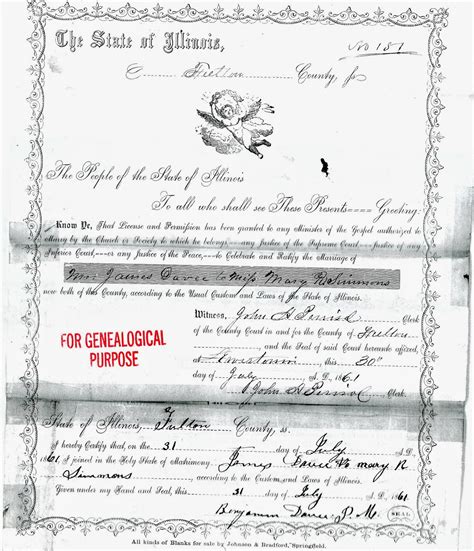 The State of Illinois,
No 151
Fulton County, ss
The People of the State of Illinois
To all who shall see These Presents Greeting:
Know Ye, That License and Permission has been granted to any Minister of the Gospel authorized to
Marry by the Church or Society to which he belongs, any Justice of the Supreme Court, Justice of any
Superior Court, or any Justice of the Peace, to Celebrate and Ratify the Marriage of
Mr James Davee to Miss Mary R Simmons
now both of this County, according to the Usual Custom and Laws of the State of Illinois.
Witness, John H Peirsol Clerk
of the County Court in and for the County of Fulton
and the Seal of said Court hereunto affixed,
at Lewistown this 30th
day of July A.D. 1861
John H Peirsol Clerk.
FOR GENEALOGICAL
PURPOSE
State of Illinois, Fulton County ss.
I hereby Certify, that on the 31 day of July A.D.
1861 I joined in the Holy State of Matrimony James Davee to Mary R
Simmons according to the Custom and Laws of Illinois.
Given under my Hand and Seal, this 31 day of July A.D. 1861
Benjamin Davee J.P. M. SEAL
All kinds of Blanks for sale by Johnson & Bradford, Springfield.